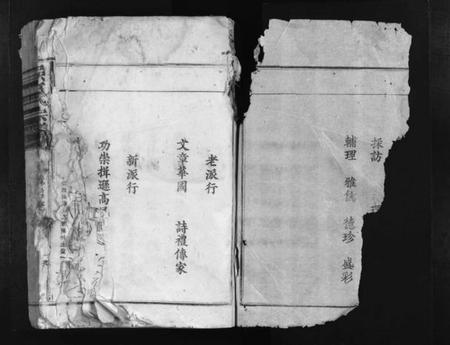 採訪
輔理 雅儀 德珍 盛彩
老派行
文章華國 詩禮傳家
新派行
功崇揖遜高